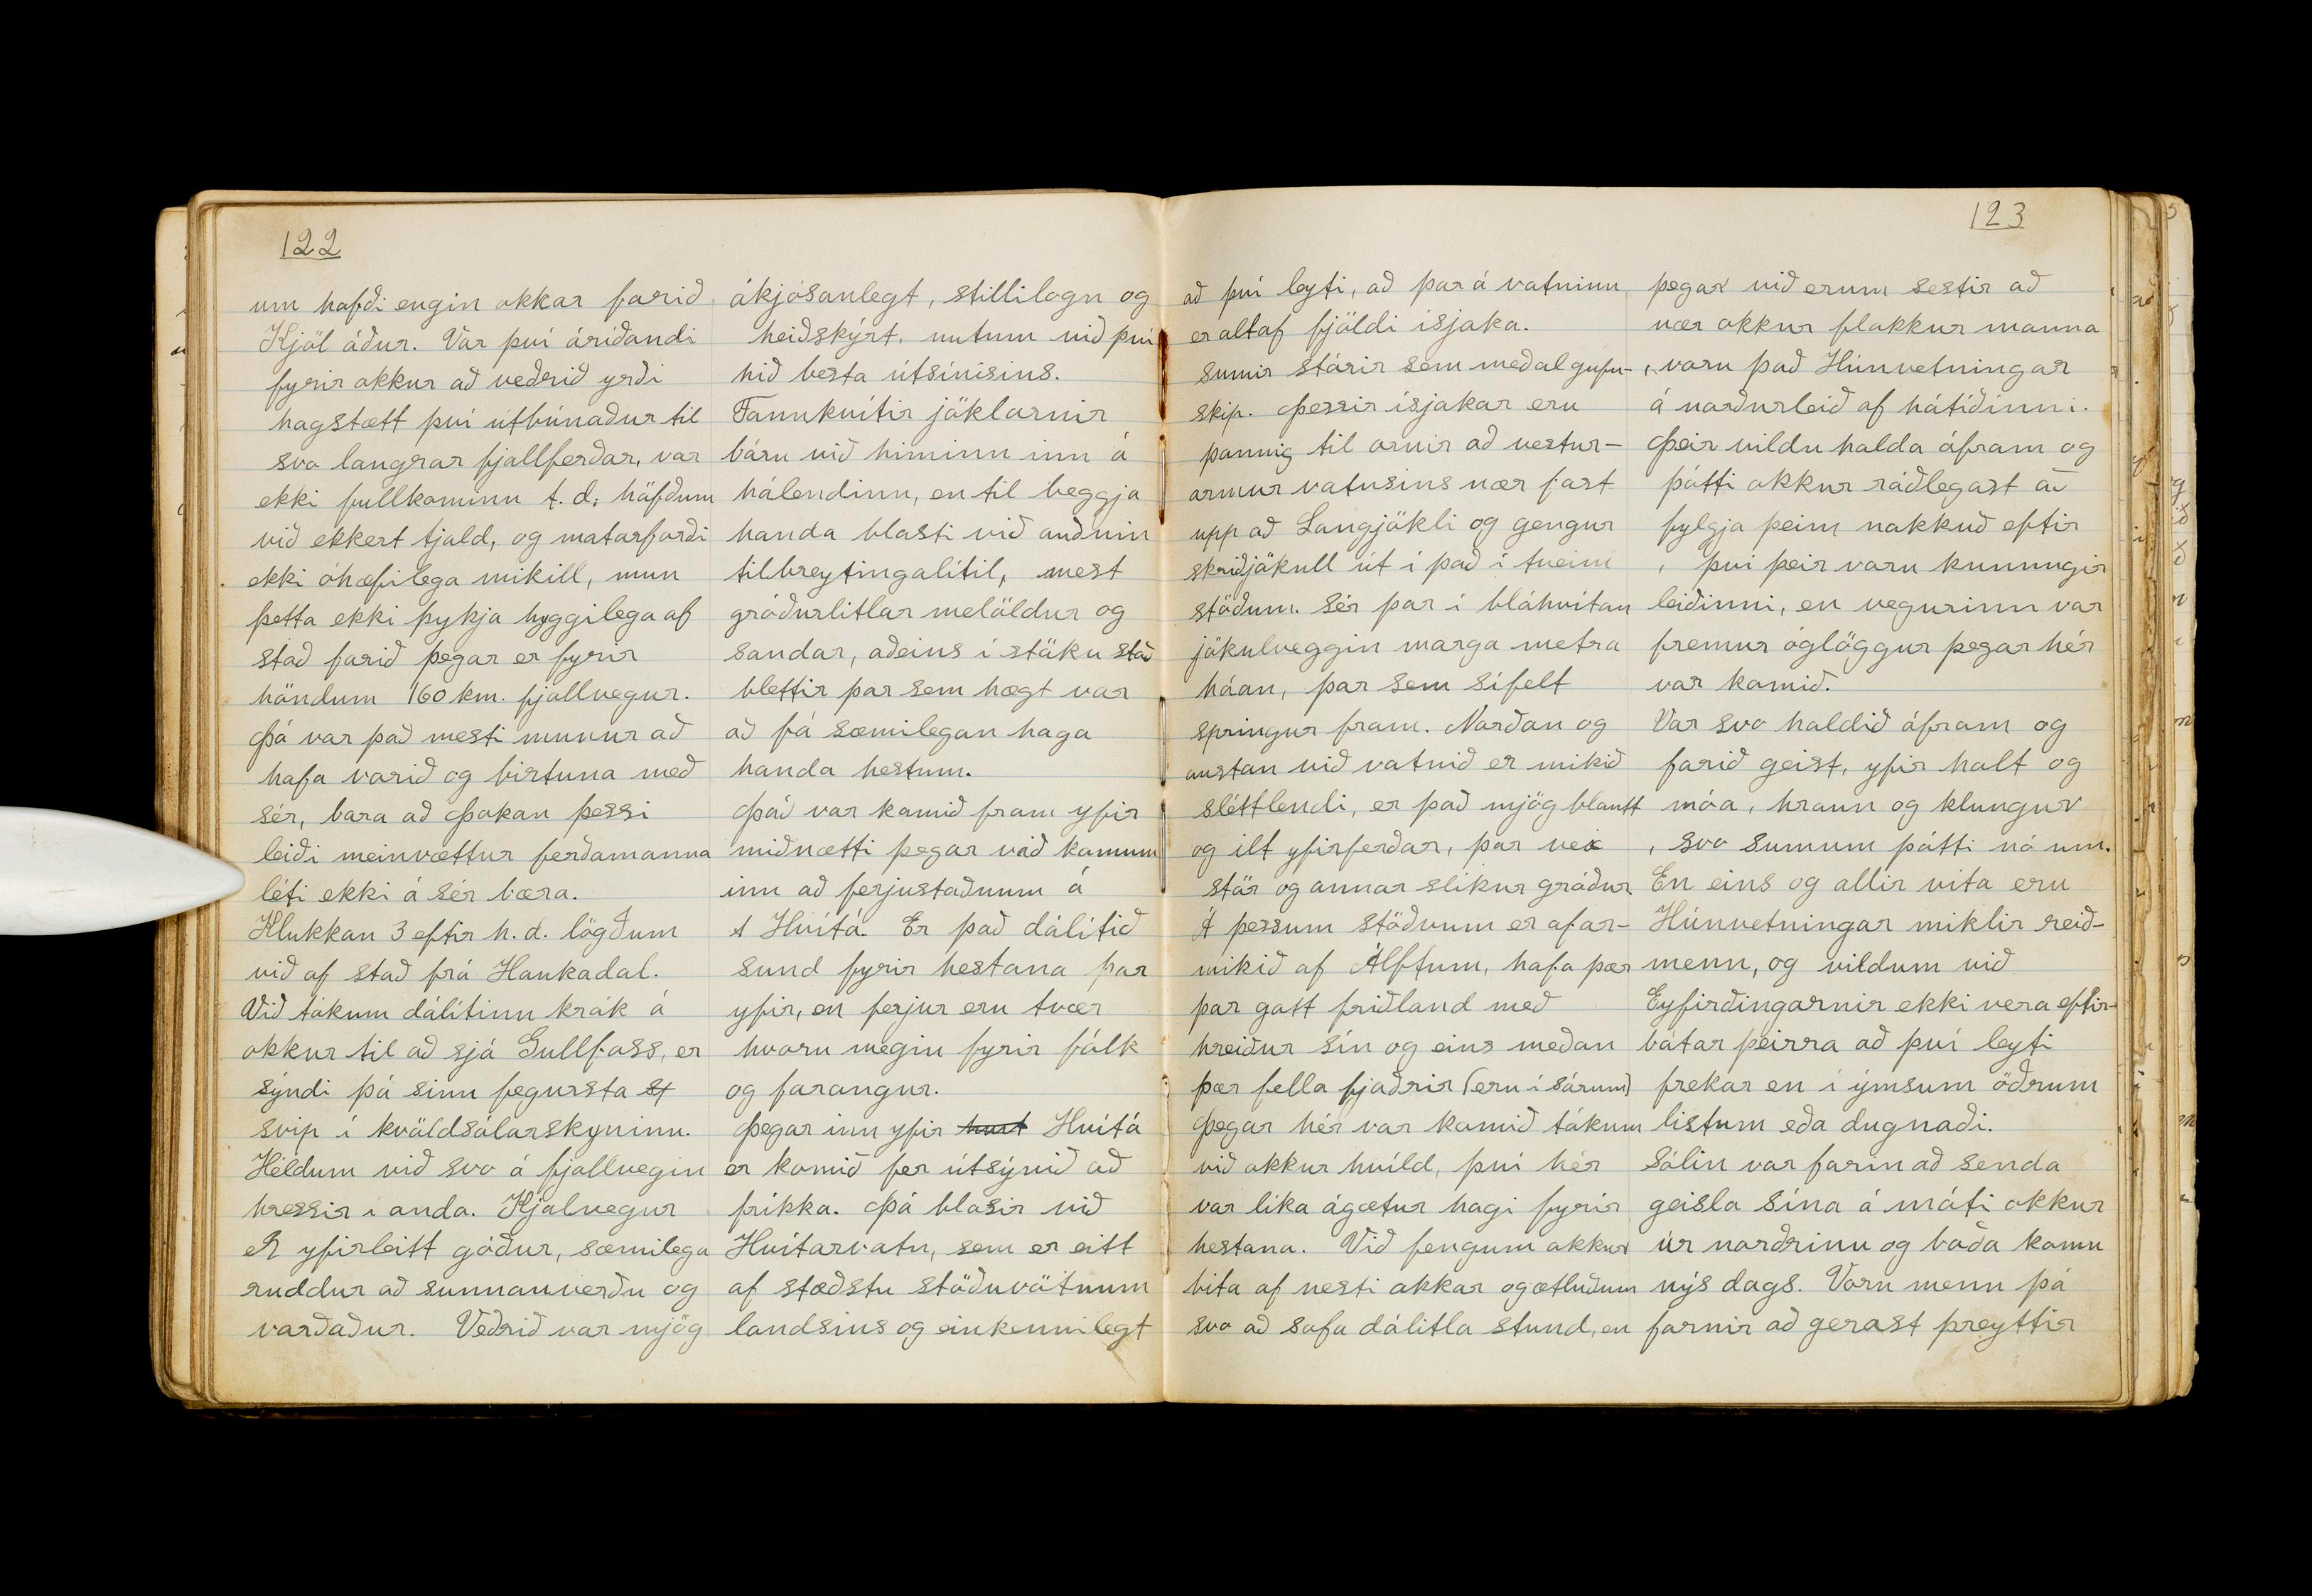 122
um hafði engin okkar farið
Kjöl áður. Var því áríðandi
fyrir okkur að veðrið yrði
hagstætt því útbúnaður til
svo langrar fjallferðar, var
ekki fullkominn t.d. höfðum
við ekkert tjald, og matarforði
ekki óhæfilega mikill, mun
þetta ekki þykja hyggilega af
stað farið þegar er fyrir
höndum 160 km. fjallvegur.
Þá var það mesti munur að
hafa vorið og birtuna með
sér, bara að Þokan þessi
leiði meinvættur ferðamanna
léti ekki á sér bæra.
Klukkan 3 eftir h.d. lögðum
við af stað frá Haukadal.
Við tókum dálítinn krók á
okkur til að sjá Gullfoss, er
sýndi þá sinn fegursta st
svip í kvöldsólarskyninu.
Héldum við svo á fjallvegin
hressir í anda. Kjalvegur
er yfirleitt góður, sæmilega
ruddur að sunnanverðu og
varðaður. Veðrið var mjög
ákjósanlegt, stillilogn og
heiðskýrt, nutum við því
hið besta útsínisins.
Fannhvítir jöklarnir
báru við himinn inn á
hálendinu, en til beggja
handa blasti við auðnin
tilbreytingalítil, mest
gróðurlitlar melöldur og
sandar, aðeins í stöku stað
blettir þar sem hægt var
að fá sæmilegan haga
handa hestum.
Það var komið fram yfir
miðnætti þegar við komum
inn að ferjustaðnum á
Hvítá. Er það dálítið
sund fyrir hestana þar
yfir, en ferjur eru tvær
hvoru megin fyrir fólk
og farangur.
Þegar inn yfir hvit Hvítá
er komið fer útsýnið að
fríkka. Þá blasir við
Hvítarvatn, sem er eitt
af stæðstu stöðuvötnum
landsins og einkennilegt
123
að því leyti, að þar á vatninu
er altaf fjöldi ísjaka.
sumir stórir sem meðal gufu-
skip. Þessir ísjakar eru
þannig til ornir að vestur-
armur vatnsins nær fast
upp að Langjökli og gengur
skriðjökull út í það í tveim
stöðum. Sér þar í bláhvítan
jökulveggin marga metra
háan, þar sem sífelt
springur fram. Norðan og
austan við vatnið er mikið
sléttlendi, er það mjög blautt
og ilt yfirferðar, þar vex
stör og annar slíkur gróður
Á þessum stöðvum er afar-
mikið af Álftum, hafa þær
þar gott friðland með
hreiður sín og eins meðan
þær fella fjaðrir (eru í sárum)
Þegar hér var komið tókum
við okkur hvíld, því hér
var líka ágætur hagi fyrir
hestana. Við fengum okkur
bita af nesti okkar og ætluðum
svo að sofa dálitla stund, en
þegar við erum sestir að
nær okkur flokkur manna
, voru það Húnvetningar
á norðurleið af hátíðinni.
Þeir vildu halda áfram og
þótti okkur ráðlegast að
fylgja þeim nokkuð eftir
, því þeir voru kunnugir
leiðinni, en vegurinn var
fremur óglöggur þegar hér
var komið.
Var svo haldið áfram og
farið geist, yfir holt og
móa, hraun og klungur
, svo sumum þótti nó um.
En eins og allir vita eru
Húnvetningar miklir reið-
menn, og vildum við
Eyfirðingarnir ekki vera eftir-
bátar þeirra að því leyti
frekar en í ýmsum öðrum
listum eða dugnaði.
Sólin var farin að senda
geisla sína á móti okkur
úr norðrinu og boða komu
nýs dags. Voru menn þá
farnir að gerast þreyttir